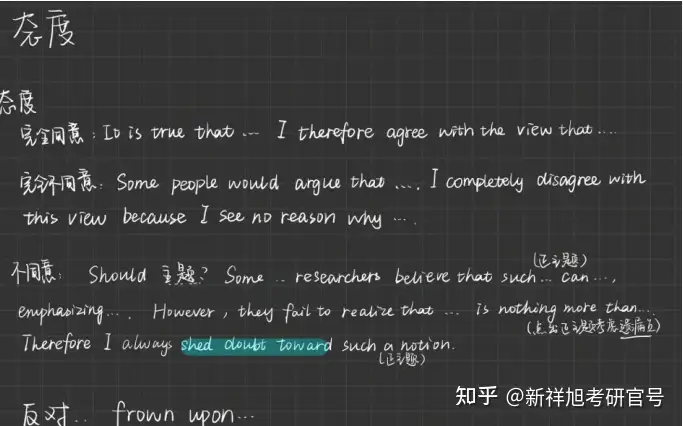 态度
态度
完全同意：It is true that ... I therefore agree with the view that ...
完全不同意：Some people would argue that .... I completely disagree with
this view because I see no reason why ....
(正主题)
不同意： Should 主题？ Some .. researchers believe that such... can ...,
emphasizing.... However, they fail to realize that ... is nothing more than...
(点出正主题考虑
Therefore I always shed doubt toward such a notion.
(正主题)
反对.. frown upon...
知乎 @新祥旭考研官号